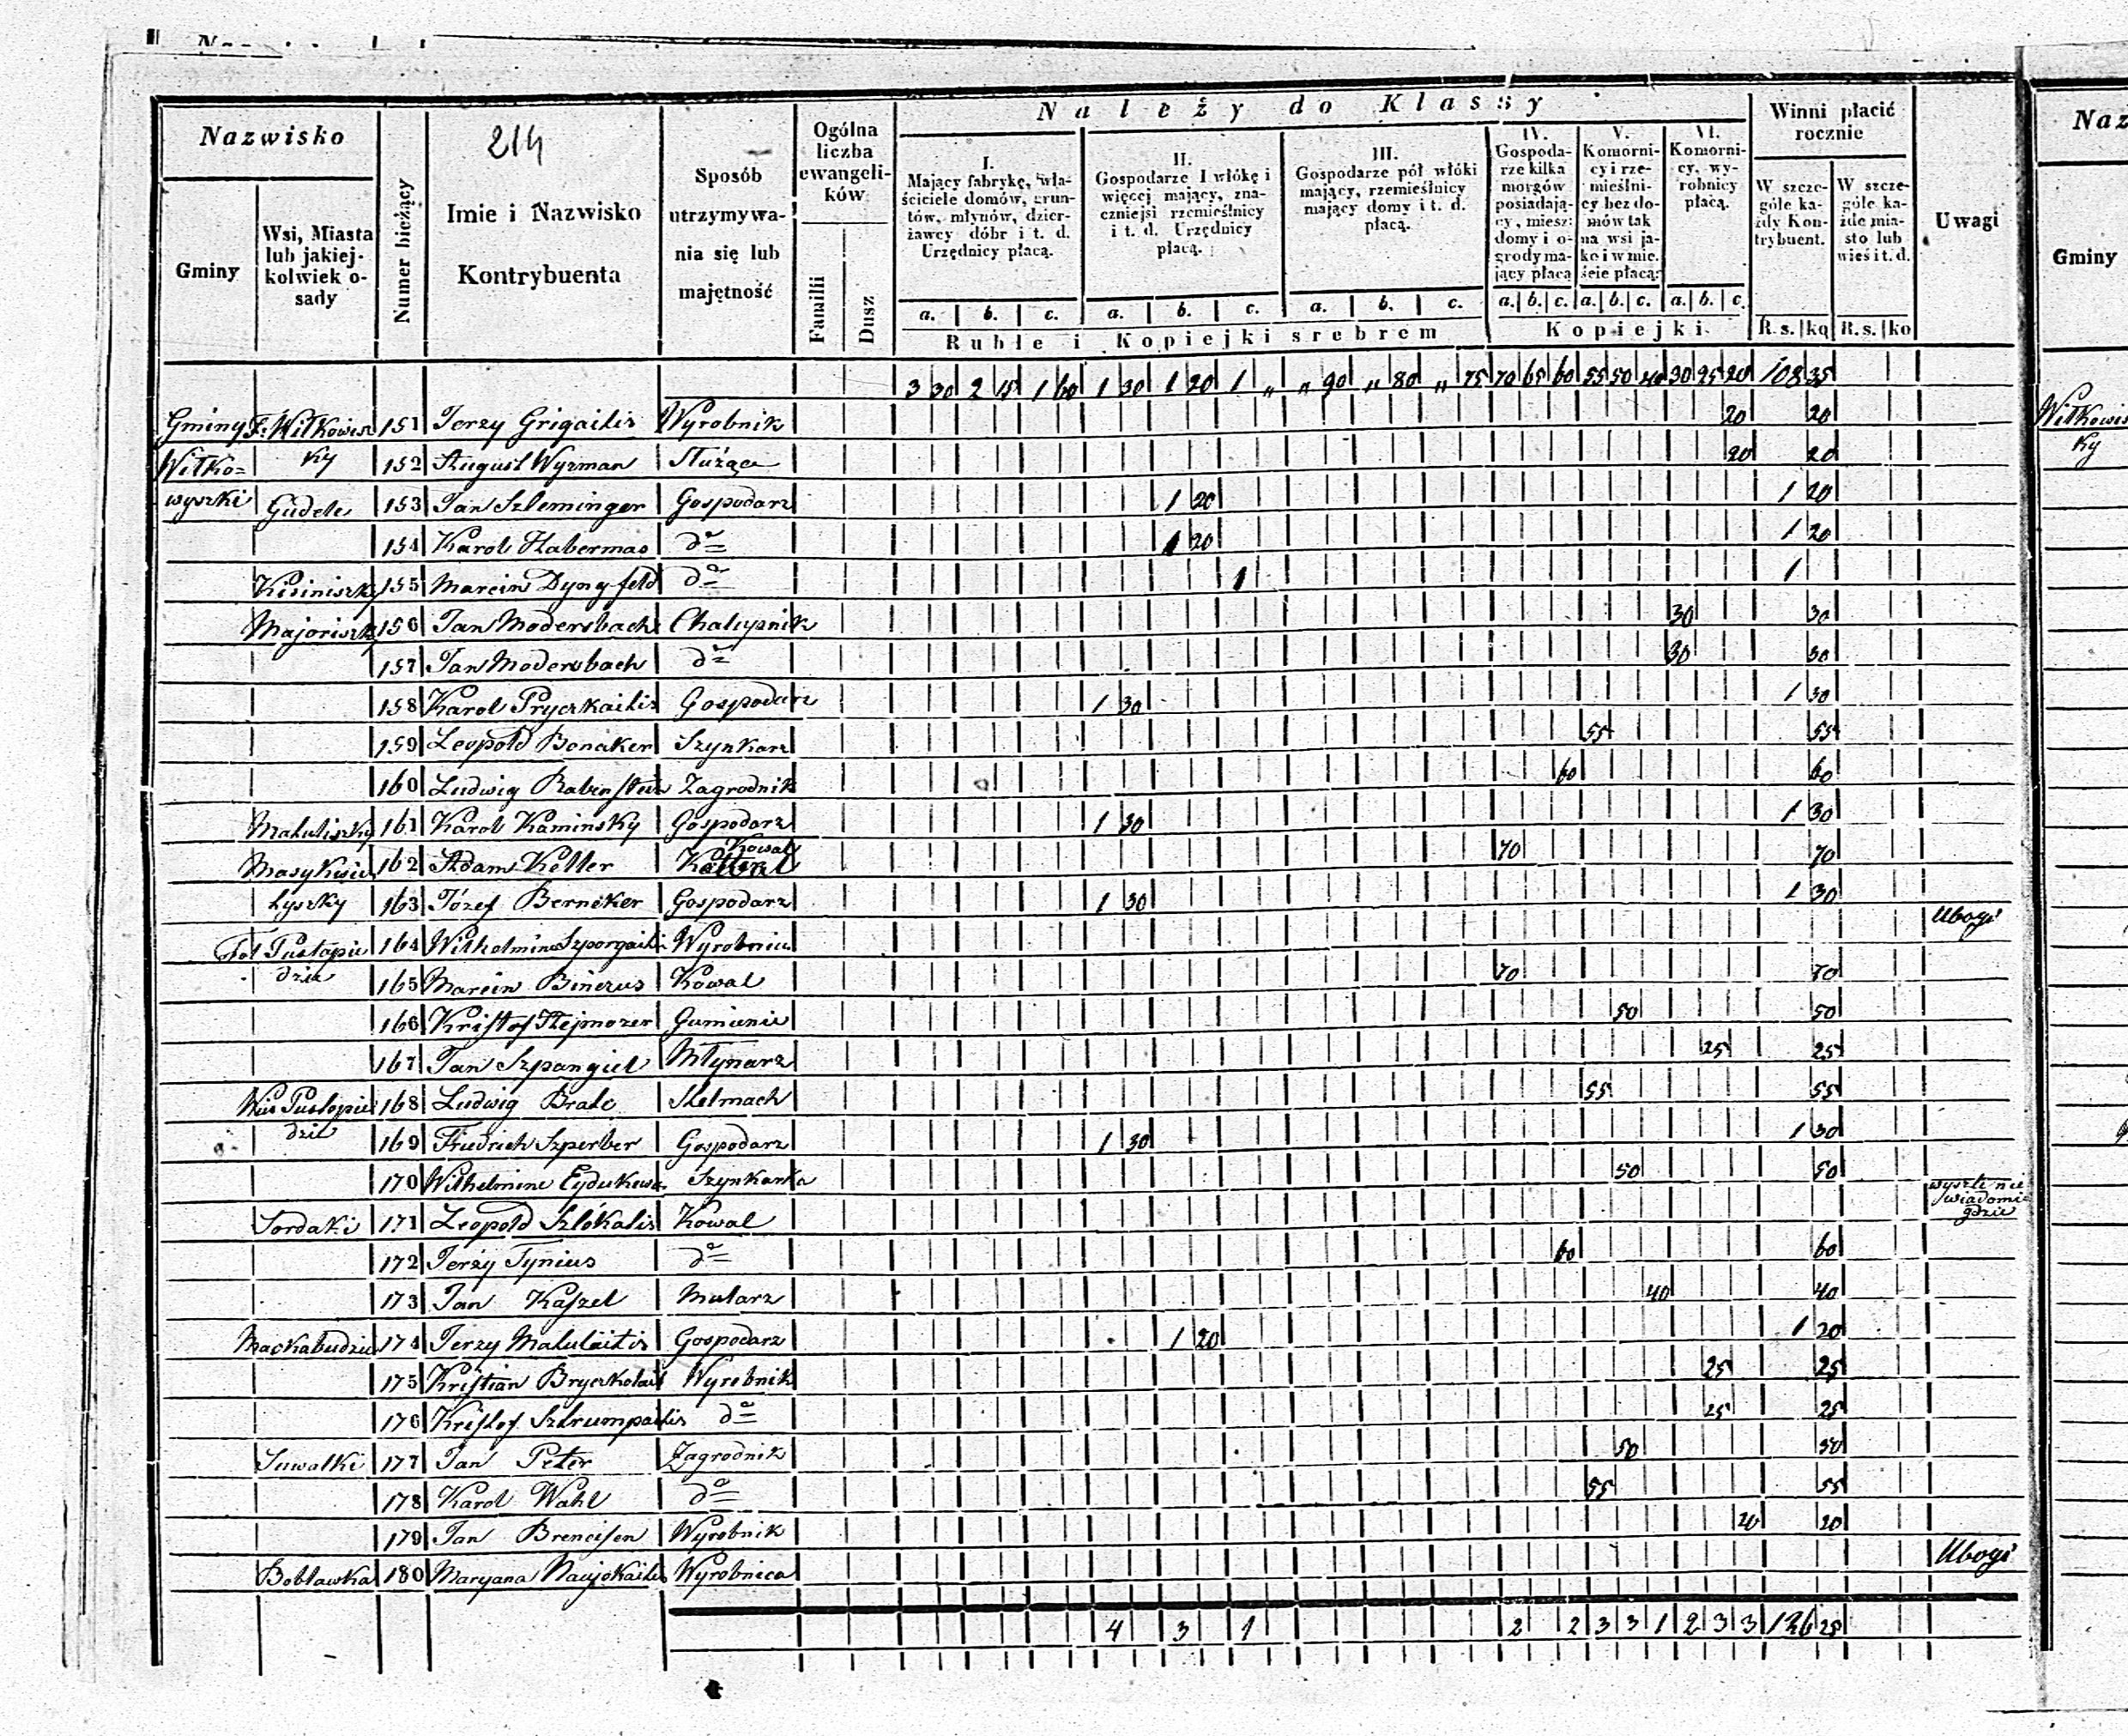 Nazwisko
214
Gminy
Wsi, Miasta lub jakiej-kolwiek o-sady
Numer bieżący
Imie i Nazwisko
Kontrybuenta
Sposób utrzymywa-nia się lub majętność
Ogólna liczba ewangeli-ków
Familii
Dusz
Należy do Klassy
I. Mający fabrykę, wła-ściciele domów, grun-tów, młynów, dzier-żawcy dóbr i t. d. Urzędnicy płacą.
II. Gospodarze 1 włókę i więcej mający, zna-czniejsi rzemieślnicy i t. d. Urzędnicy płacą.
III. Gospodarze pół włóki mający, rzemieślnicy mający domy i t. d. płacą.
IV. Gospoda-rze kilka morgów posiadają-cy, miesz: domy i o-grody ma-jący płacą
V. Komorni-cy i rze-mieślni-cy bez do-mów tak na wsi ja-ko i w mie-ście płacą:
VI. Komorni-cy, wy-robnicy płacą.
a. b. c. a. b. c. a. b. c. a. b. c. a. b. c. a. b. c.
Ruble i Kopiejki srebrem
Kopiejki
Winni płacić rocznie
W szcze-góle ka-żdy Kon-trybuent.
W szcze-góle ka-żde mia-sto lub wieś i t. d.
R. s. ko R. s. ko
Uwagi
Naz
Gminy
3 30 2 15 1 60 1 30 1 20 1 „ „ 90 „ 80 „ 75 70 65 60 55 50 40 30 25 20 108 35
Gminy F: Witkowisz 151 Jerzy Grigailis Wyrobnik 20 20
Witko= ky 152 August Wyzman Służące 20 20
wyszki Gudele 153 Jan Szleminger Gospodarz 1 20 1 20
154 Karol Habermas do 1 20 1 20
155 Marcin Dyngfeld do 1 1
Majoriszky 156 Jan Modersbach Chałupnik 30 30
157 Jan Modersbach do 30 30
158 Karol Pryczkaitis Gospodarz 1 30 1 30
159 Leopold Benaker Szynkarz 55 55
160 Ludwig Zagrodnik 60 60
Maluliszky 161 Karol Kaminsky Gospodarz 1 30 1 30
162 Adam Keller Kowal 70 70
łyszky 163 Józef Berneker Gospodarz 1 30 1 30
Fol Pustapie 164 Wilhelmine Wyrobnica Ubogi
dzie 165 Marcin Binerus Kowal 70 70
166 Kristof Hejmozer Gumienie 50 50
167 Jan Szpangiel Młynarz 25 25
Wieś Pustopie 168 Ludwig Brale Stelmach 55 55
dzie 169 Friedrich Szperber Gospodarz 1 30 1 30
170 Wilhelmine Szynkarka 50 50
Sordaki 171 Leopold Szlokalis Kowal wyszli nie wiadomie gdzie
172 Jerzy Tynius do 60 60
173 Jan Kaszel Mularz 40 40
Mackabudzie 174 Jerzy Malulaitis Gospodarz 1 20 1 20
175 Kristian Wyrobnik 25 25
176 Kristof Sztrumpaitis do 25 25
Suwalki 177 Jan Peter Zagrodnik 50 50
178 Karol Wahl do 55 55
179 Jan Brencisen Wyrobnik 20 20
Boblawka 180 Maryana Wyrobnica Ubogi
4 3 1 2 2 3 3 1 2 3 3 126 25
Witkowis
ky